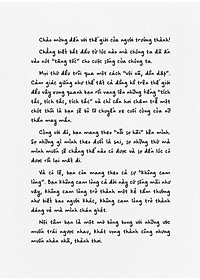 Chào mừng đến với thế giới của người trưởng thành!
Chẳng biết bắt đầu từ lúc nào mà chúng ta đã ấn
vào nút "tăng tốc" cho cuộc sống của chúng ta.
Mọi thứ đều trôi qua một cách "vội vã, dồn dập".
Cảm giác giống như tất cả đồng hồ trên thế giới
đều vây xung quanh bạn rồi vang lên những tiếng "tích
tắc, tích tắc, tích tắc" và chỉ cần hơi chậm trễ một
chút thôi là bạn sẽ bị lỡ chuyến xe cuối cùng của nữ
thần may mắn.
Cùng với đó, bạn mang theo "nỗi sợ hãi" bên mình.
Sợ những gì mình theo đuổi là sai, sợ những thứ mà
mình muốn sẽ chẳng thể nào có được và sợ đến lúc có
được rồi lại mất đi.
Và có lẽ, bạn còn mang theo cả sự "không cam
lòng". Bạn không cam lòng cả đời này cứ sống mãi như
vậy, không cam lòng trở thành một kẻ tầm thường
như biết bao người khác, không cam lòng trở thành
dáng vẻ mà mình chán ghét.
Nội tâm bạn là một mớ bòng bong với những ước
muốn trái ngược nhau, khát vọng thành công nhưng
muốn nhàn nhã, thảnh thơi.